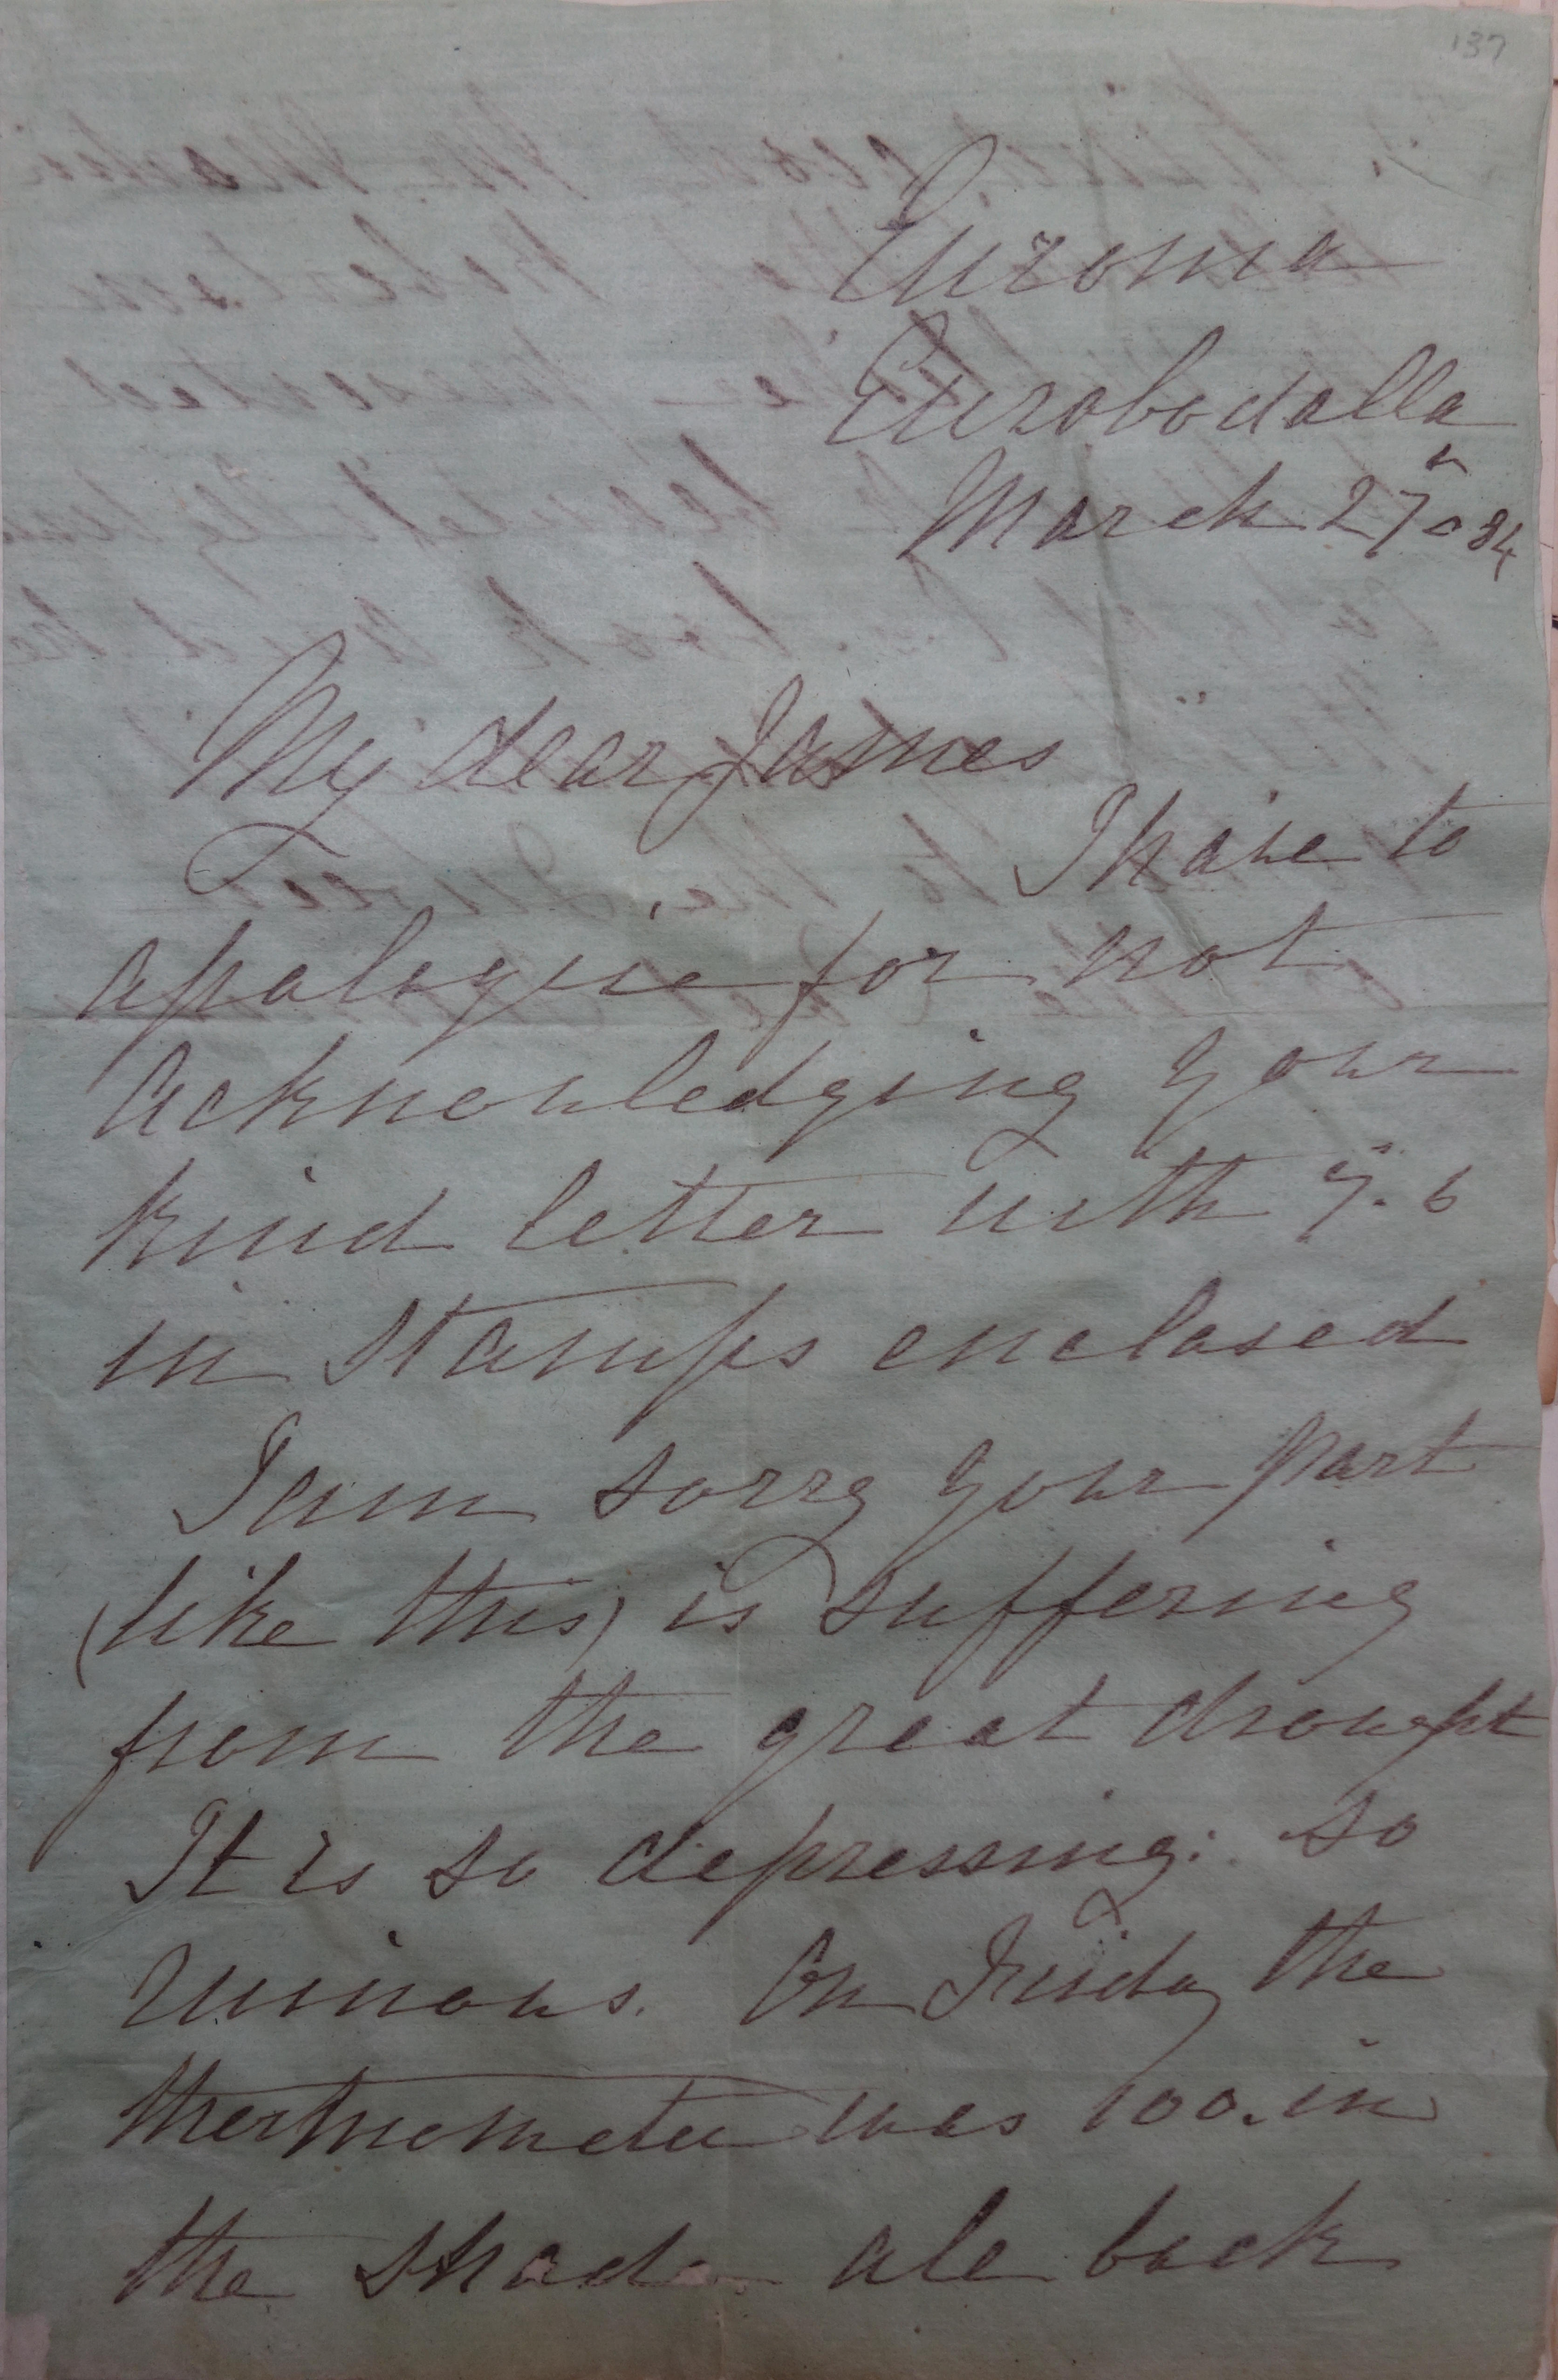 137
Euroma
Eurobodalla
March 27th 84
My dear James
I have to
apologise for not
acknowledging your
kind letter with 7.6
in stamps enclosed
I am sorry your part
(like this) is suffering
from the great drought
It is so depressing: so
ruinous. On Friday the
thermometer was 100. in
the shade all back